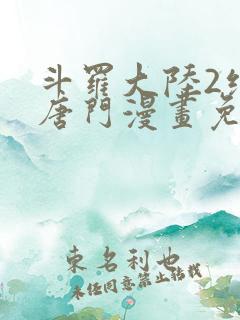 斗羅大陸2
唐門漫畫免
東名利也
未經同意禁止轉載